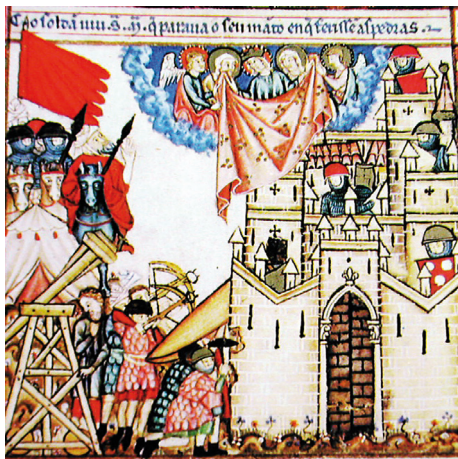 Cõ o soldã uiu S. M̃. q̃ paraua o seu mãto en q̃ ferissẽ as pedras.